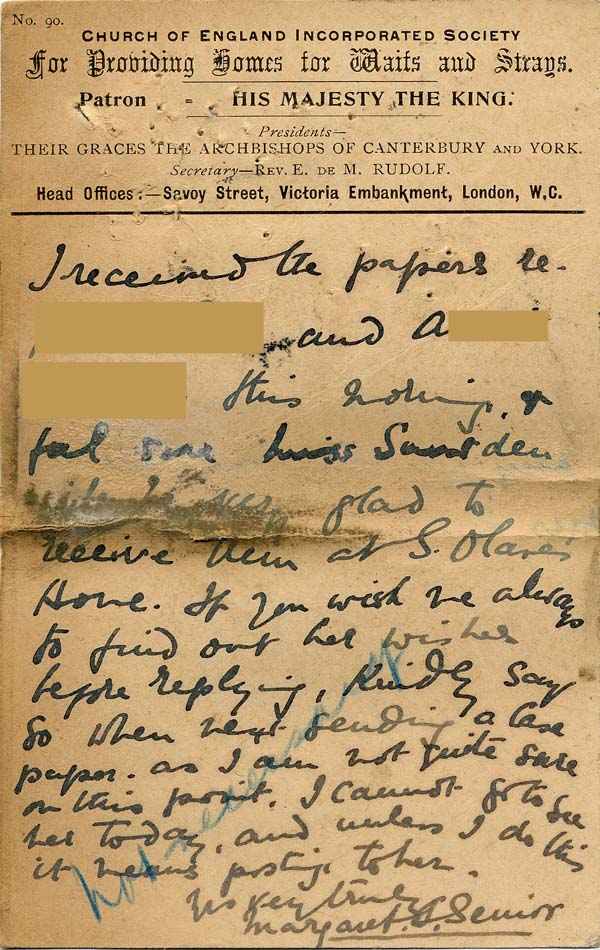 No. 90.
CHURCH OF ENGLAND INCORPORATED SOCIETY
For Providing Homes for Waifs and Strays.
Patron = HIS MAJESTY THE KING.
Presidents—
THEIR GRACES THE ARCHBISHOPS OF CANTERBURY AND YORK.
Secretary—REV. E. DE M. RUDOLF.
Head Offices:—Savoy Street, Victoria Embankment, London, W.C.
I received the papers re.
and A
this morning, &
feel sure Miss
will be very glad to
receive them at S. Olaves
Home. If you wish me always
to find out her wishes
before replying, kindly say
so when next sending a case
paper. as I am not quite sure
on this point. I cannot go to see
her today, and unless I do this
it means posting to her.
Yrs very truly
Margaret. S. Senior
not necessary